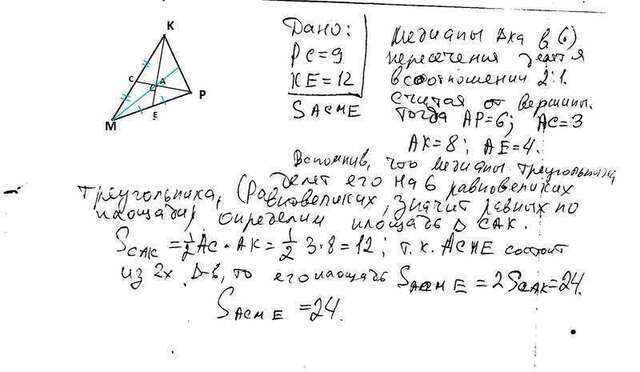 K
C
A
P
M
E
Дано:
PC=9
KE=12
S ACME
Медианы Δка в (·)
пересечения делятся
в соотношении 2:1.
считая от вершины.
Тогда AP=6; AC=3
AK=8; AE=4.
Вспомнив, что медианы треугольника
треугольника, делят его на 6 равновеликих
(равновеликих, значит равных по
площади) определим площадь Δ CAK.
S CAK = 1/2 AC · AK = 1/2 3·8=12; т.к. ACME состоит
из 2х Δ-в, то его площадь S ACME = 2 S CAK = 24.
S ACME = 24.